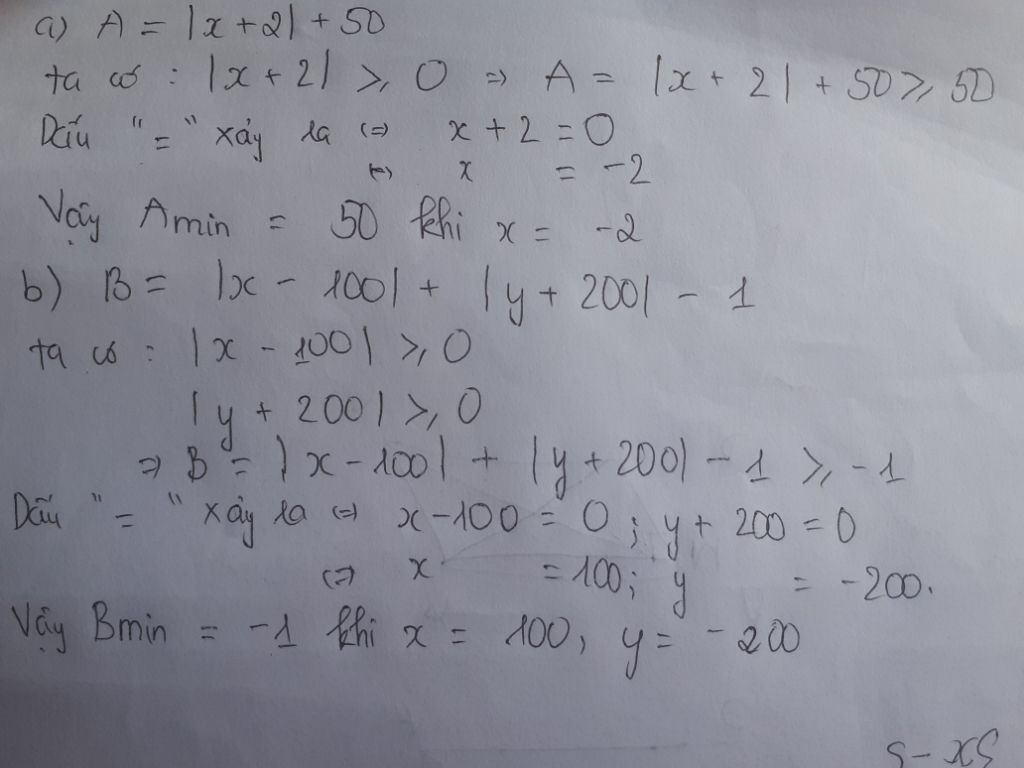 a) A = |x+2| + 50
ta có : |x + 2| ⩾ 0 => A = |x + 2| + 50 ⩾ 50
Dấu "=" xảy ra <=> x + 2 = 0
<=> x = -2
Vậy Amin = 50 khi x = -2
b) B = |x - 100| + |y + 200| - 1
ta có : |x - 100| ⩾ 0
|y + 200| ⩾ 0
=> B = |x - 100| + |y + 200| - 1 ⩾ -1
Dấu "=" xảy ra <=> x - 100 = 0 ; y + 200 = 0
<=> x = 100; y = -200.
Vậy Bmin = -1 khi x = 100, y = -200